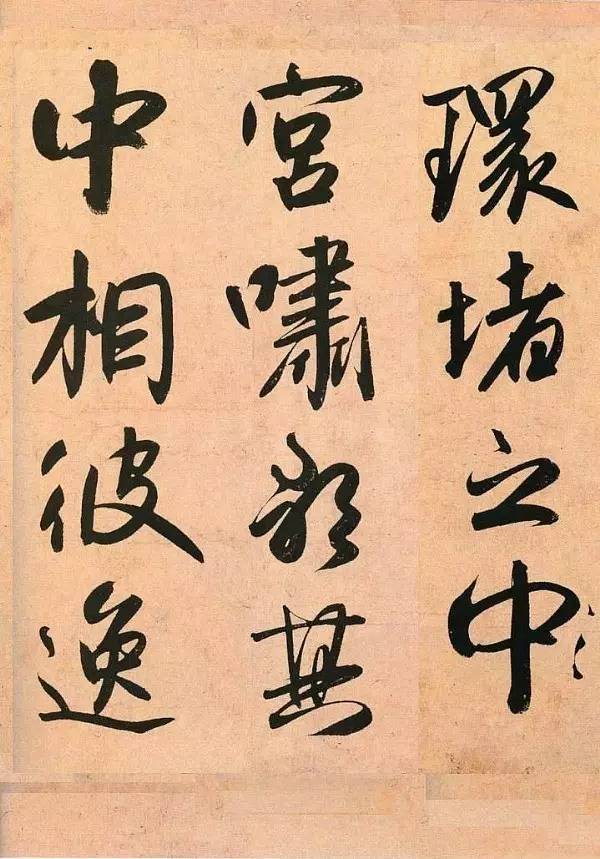 環堵之中
宮嘯無
中相彼逸